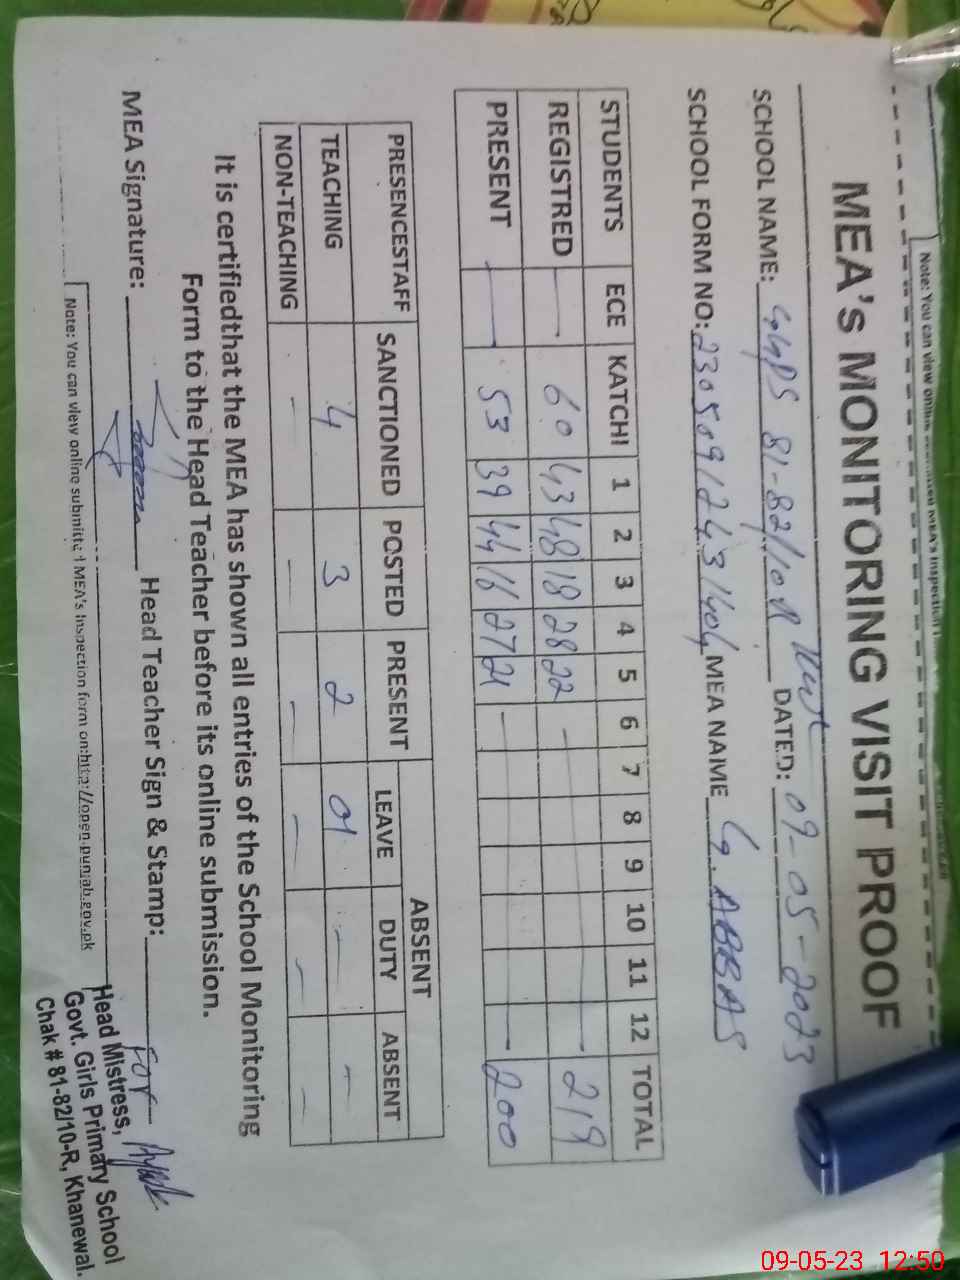 Note: You can view online
MEA's Inspection
MEA's MONITORING VISIT PROOF
SCHOOL NAME: GGPS 81-82/10R DATED: 09-05-2023
SCHOOL FORM NO: MEA NAME G. ABBAS
STUDENTS ECE KATCHI 1 2 3 4 5 6 7 8 9 10 11 12 TOTAL
REGISTRED — 60 43 48 18 28 22 — 219
PRESENT — 53 39 44 16 27 21 — 200
PRESENCESTAFF SANCTIONED POSTED PRESENT ABSENT
LEAVE DUTY ABSENT
TEACHING 4 3 2 01 - -
NON-TEACHING - - - - - -
It is certifiedthat the MEA has shown all entries of the School Monitoring
Form to the Head Teacher before its online submission.
MEA Signature: Head Teacher Sign & Stamp: For
Head Mistress,
Govt. Girls Primary School
Chak # 81-82/10-R, Khanewal.
Note: You can view online submitted MEA's Inspection form on:http://open.punjab.gov.pk
09-05-23 12:50